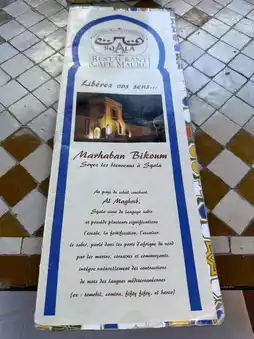 SQALA
RESTAURANT
CAFÉ MAURE
Libérez vos sens...
Marhaban Bikoum
Soyez les bienvenus à Sqala
Au pays du soleil couchant,
Al Maghreb,
Sqala vient du langage sabir
et possède plusieurs significations
l'escale, la fortification, l'escalier.
le sabir, parlé dans les ports d'afrique du nord
par les marins, corsaires et commerçants,
intègre naturellement des contractions
de mots des langues méditerranéennes